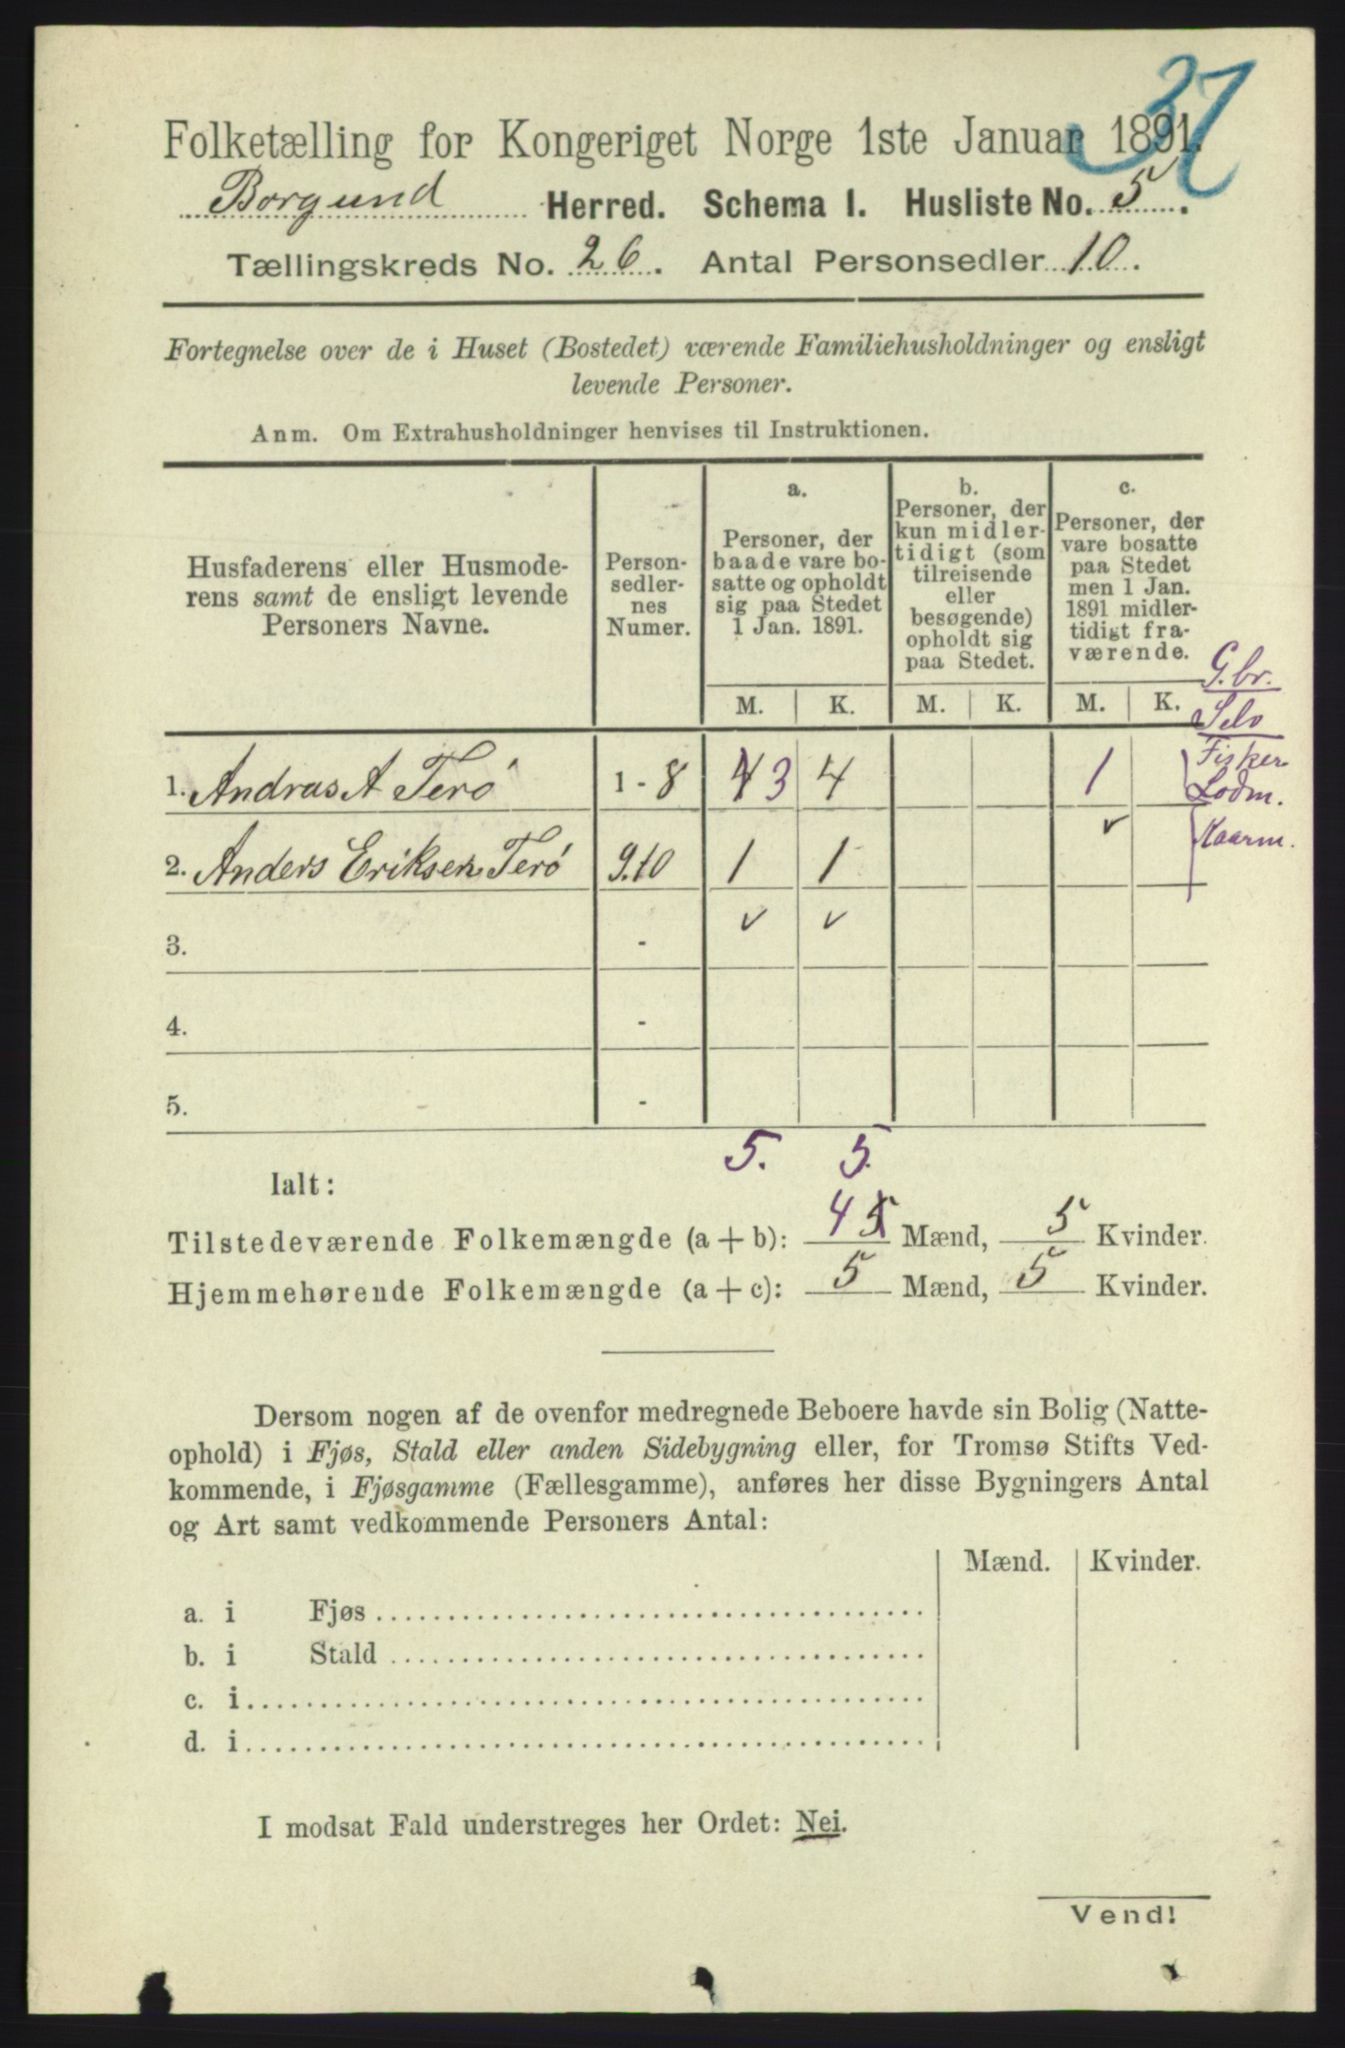 37
Folketælling for Kongeriget Norge 1ste Januar 1891.
Borgund Herred. Schema I. Husliste No. 5.
Tællingskreds No. 26. Antal Personsedler 10.
Fortegnelse over de i Huset (Bostedet) værende Familiehusholdninger og ensligt
levende Personer.
Anm. Om Extrahusholdninger henvises til Instruktionen.
Husfaderens eller Husmode-
rens samt de ensligt levende
Personers Navne.
Person-
sedler-
nes
Numer.
a.
Personer, der
baade vare bo-
satte og opholdt
sig paa Stedet
1 Jan. 1891.
b.
Personer, der
kun midler-
tidigt (som
tilreisende
eller
besøgende)
opholdt sig
paa Stedet.
c.
Personer, der
vare bosatte
paa Stedet
men 1 Jan.
1891 midler-
tidigt fra-
værende.
M. K. M. K. M. K.
G.br.
Selv
Fisker
Lodm.
1. Andras A Terö 1 - 8 4 3 4 1
2. Anders Eriksen Terö 9.10 1 1 ✓
✓ ✓
3. -
4. -
5. -
5. 5.
Ialt:
Tilstedeværende Folkemængde (a + b): 4 5 Mænd, 5 Kvinder.
Hjemmehørende Folkemængde (a + c): 5 Mænd, 5 Kvinder.
Dersom nogen af de ovenfor medregnede Beboere havde sin Bolig (Natte-
ophold) i Fjøs, Stald eller anden Sidebygning eller, for Tromsø Stifts Ved-
kommende, i Fjøsgamme (Fællesgamme), anføres her disse Bygningers Antal
og Art samt vedkommende Personers Antal:
Mænd. Kvinder.
a. i Fjøs
b. i Stald
c. i
d. i
I modsat Fald understreges her Ordet: Nei.
Vend!